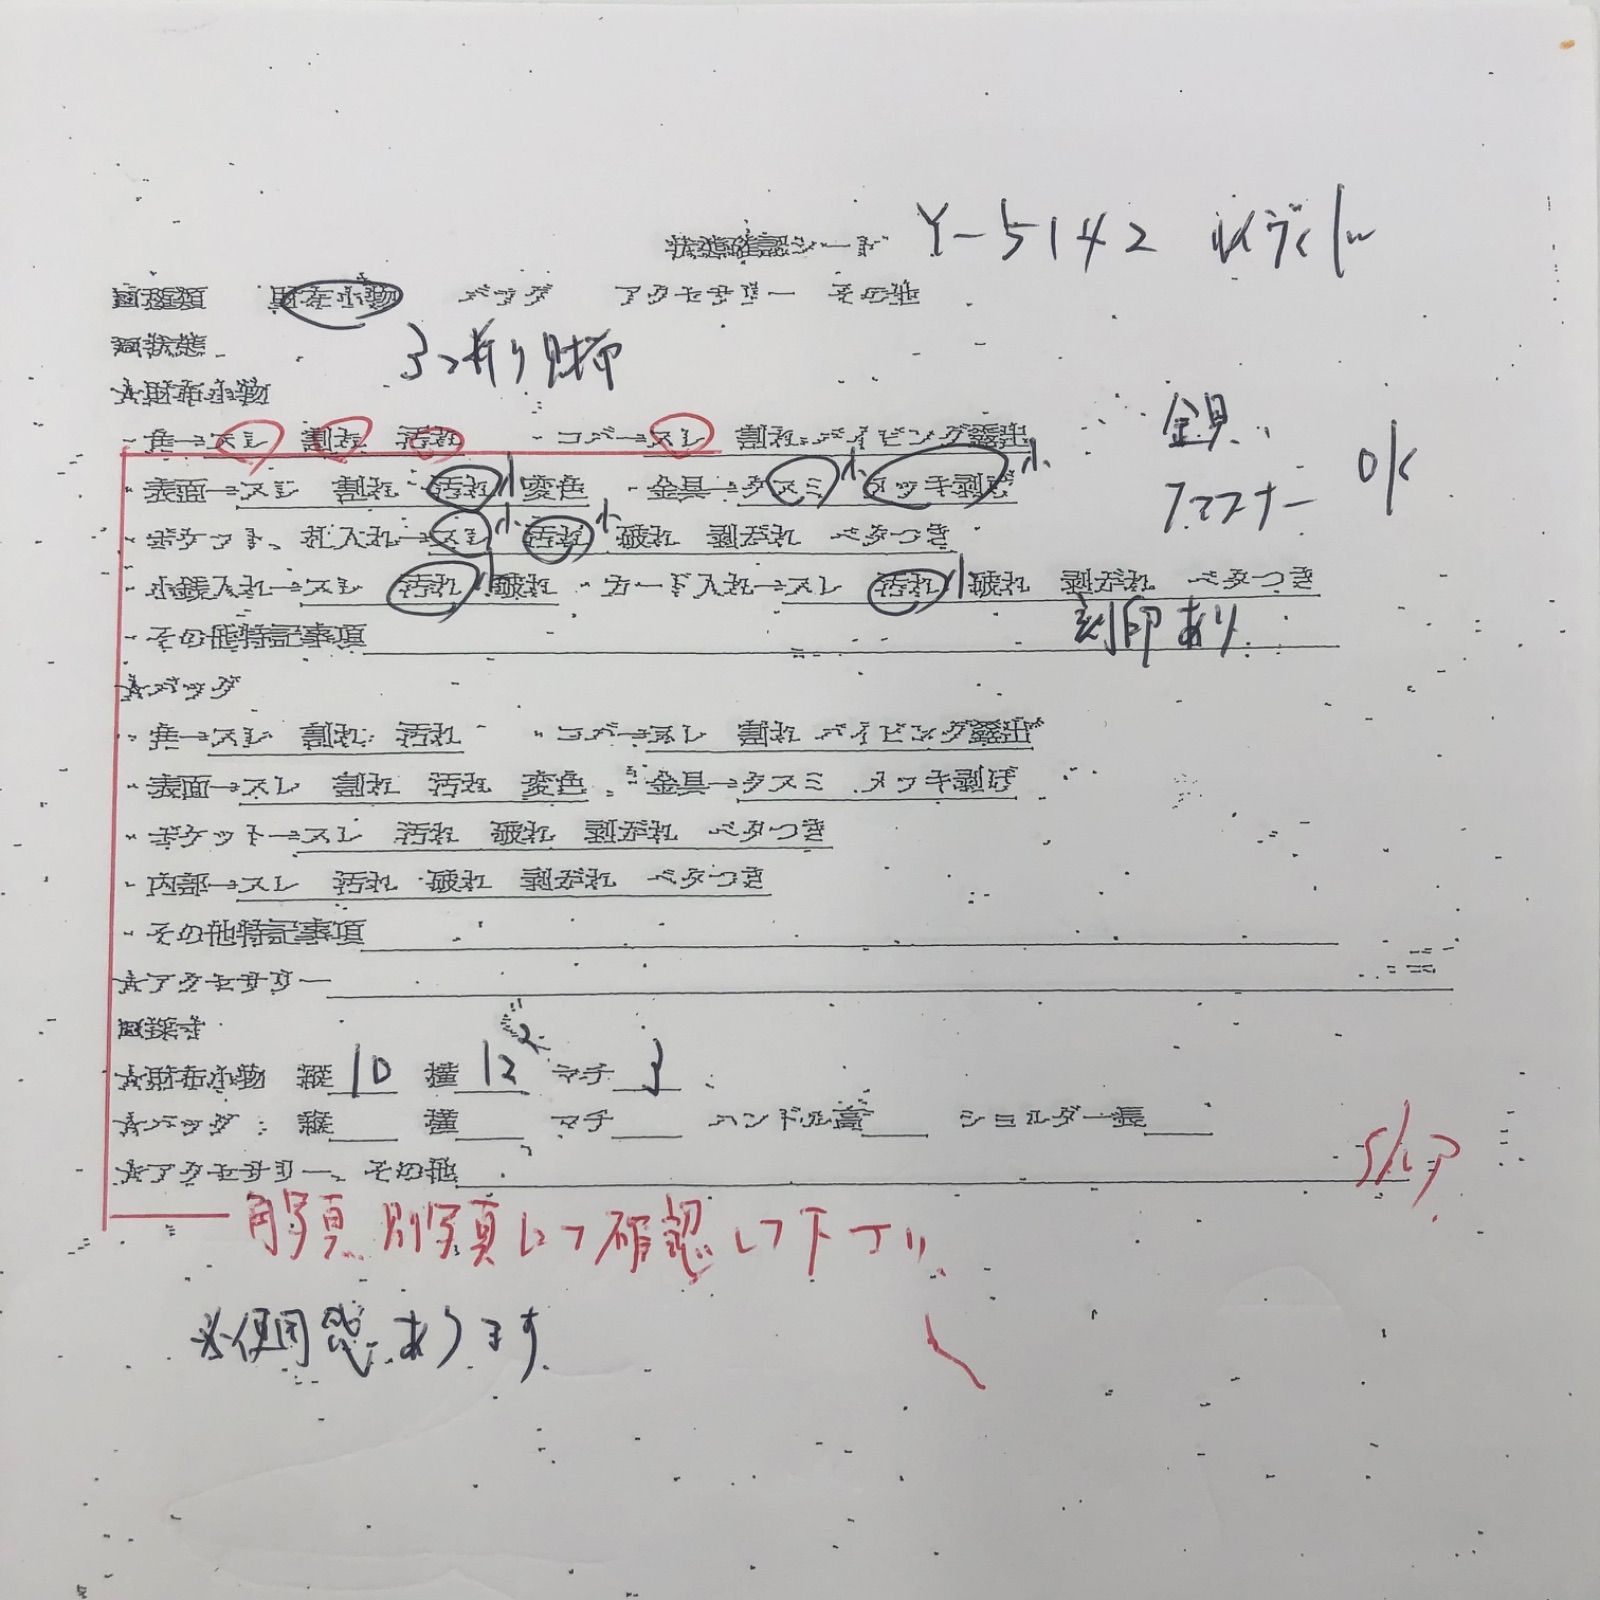 状態確認シート Y-5142
■種類 財布小物 バッグ アクセサリー その他
■状態
3つ折り財布
☆財布小物
・角→スレ 割れ 汚れ ・コバ→スレ 割れ パイピング露出
金具
・表面→スレ 割れ 汚れ小 変色 ・金具→クスミ小 メッキ剥げ小
ファスナー OK
・ポケット、札入れ→スレ小 汚れ小 破れ 剥がれ ベタつき
・小銭入れ→スレ 汚れ小 破れ ・カード入れ→スレ 汚れ小 破れ 剥がれ ベタつき
・その他特記事項 刻印あり
☆バッグ
・角→スレ 割れ 汚れ ・コバ→スレ 割れ パイピング露出
・表面→スレ 割れ 汚れ 変色 ・金具→クスミ メッキ剥げ
・ポケット→スレ 汚れ 破れ 剥がれ ベタつき
・内部→スレ 汚れ 破れ 剥がれ ベタつき
・その他特記事項
☆アクセサリー
■採寸
☆財布小物 縦10 横12 マチ3
☆バッグ 縦 横 マチ ハンドル高 ショルダー長
☆アクセサリー、その他
角写真 別写真にて確認して下さい
※使用感あります